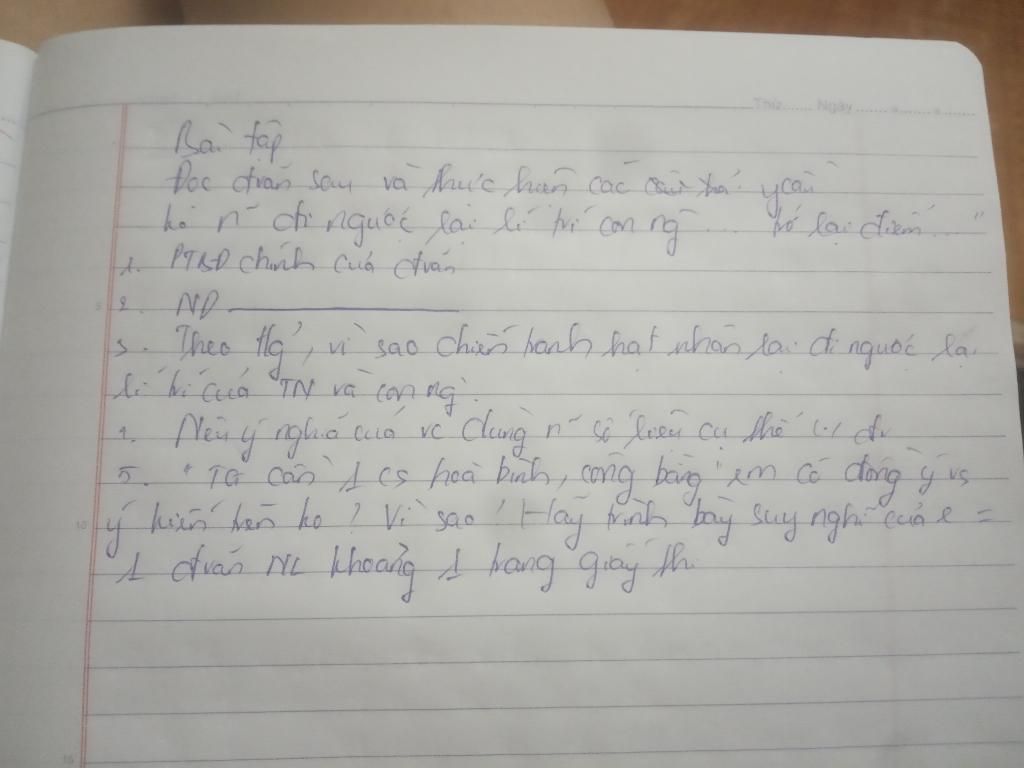 Thứ ...... Ngày ...... . ...... . ......
Bài tập
Đọc đvăn sau và thực hiện các ycầu
ko n~ đi ngược lại lí trí con ng ... trở lại điểm ... "
1. PTBĐ chính của đvăn
2. ND
3. Theo tg, vì sao chiến tranh hạt nhân lại đi ngược lại
lí trí của TN và con ng.
4. Nêu ý nghĩa của vc dùng n~ số liệu cụ thể
5. "TG cần 1 cs hoà bình, công bằng" em có đồng ý vs
ý kiến trên ko? Vì sao? Hãy trình bày suy nghĩ của e =
1 đvăn NL khoảng 1 trang giấy thi
5
10
15